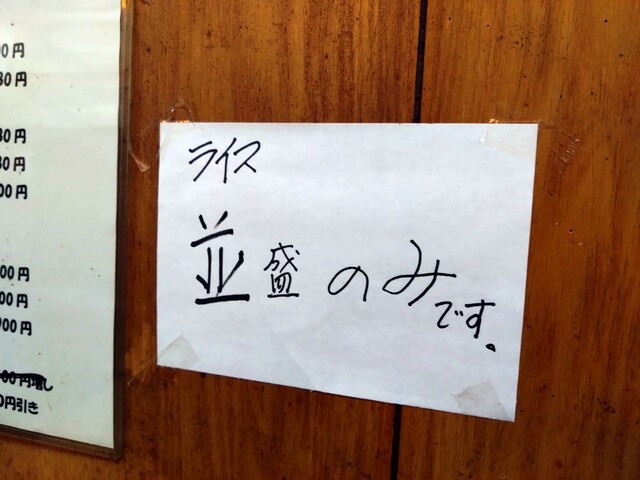 00円
30円
30円
30円
00円
00円
00円
900円
00円増し
0円引き
ライス
並盛のみです。